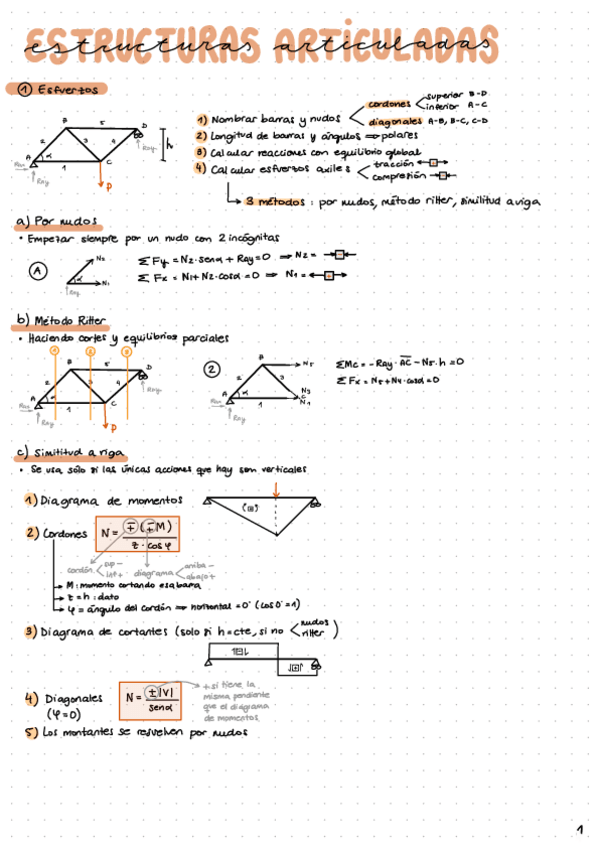 ESTRUCTURAS ARTICULADAS
① Esfuerzos
cordones superior B-D
inferior A-C
1) Nombrar barras y nudos diagonales A-B, B-C, C-D
2) Longitud de barras y ángulos ⇒ polares
3) Calcular reacciones con equilibrio global
4) Calcular esfuerzos axiles tracción
compresión
3 métodos: por nudos, método ritter, similitud a viga
B 5 D
2 3 4 h
A α 1 C
Rax Ray Ray
P
a) Por nudos
• Empezar siempre por un nudo con 2 incógnitas
A N2 α N1 Ray
ΣFy = N2·senα + Ray = 0 ⇒ N2 =
ΣFx = N1 + N2·cosα = 0 ⇒ N1 =
b) Método Ritter
• Haciendo cortes y equilibrios parciales
1 2 3
B 5 D
2 3 4
A α 1 C
Rax Ray Ray
P
2
B N5
2 3
A α 1 N3 C N1
Rax Ray
ΣMc = -Ray·AC - N5·h = 0
ΣFx = N5 + N4·cosα = 0
c) Simititud a viga
• Se usa sólo si las únicas acciones que hay son verticales
1) Diagrama de momentos
(+)
2) Cordones N = ∓(±M) / z·cosφ
cordón sup - inf + diagrama arriba - abajo +
M: momento cortando esa barra
z = h: dato
φ = ángulo del cordón ⇒ horizontal = 0° (cos0° = 1)
3) Diagrama de cortantes (solo si h=cte, si no nudos ritter)
4) Diagonales (φ=0) N = ±|V| / senα
+ si tiene la
misma pendiente
que el diagrama
de momentos
5) Los montantes se resuelven por nudos
1